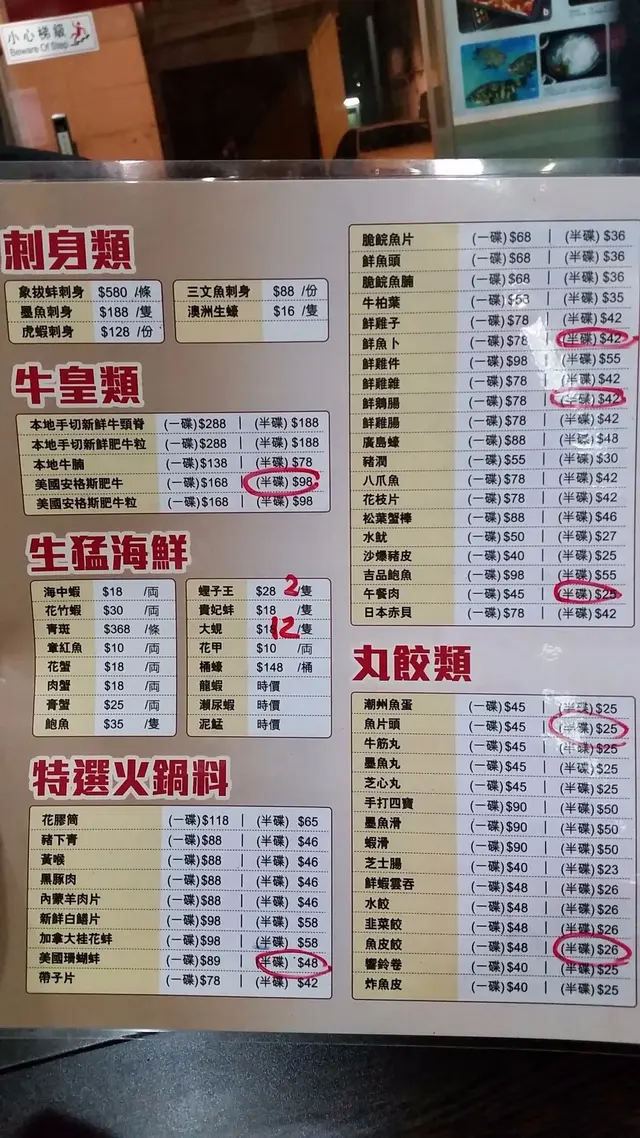 小心梯級
Beware Of Step
刺身類
象拔蚌刺身 $580 /條
墨魚刺身 $188 /隻
虎蝦刺身 $128 /份
三文魚刺身 $88 /份
澳洲生蠔 $16 /隻
牛皇類
本地手切新鮮牛頸脊 (一碟)$288 | (半碟)$188
本地手切新鮮肥牛粒 (一碟)$288 | (半碟)$188
本地牛腩 (一碟)$138 | (半碟)$78
美國安格斯肥牛 (一碟)$168 | (半碟)$98
美國安格斯肥牛粒 (一碟)$168 | (半碟)$98
生猛海鮮
海中蝦 $18 /両
花竹蝦 $30 /両
青斑 $368 /條
章紅魚 $10 /両
花蟹 $18 /両
肉蟹 $18 /両
膏蟹 $25 /両
鮑魚 $35 /隻
蟶子王 $28 2 /隻
貴妃蚌 $18 /隻
大蜆 12 /隻
花甲 $10 /両
桶蠔 $148 /桶
龍蝦 時價
瀨尿蝦 時價
泥鯭 時價
特選火鍋料
花膠筒 (一碟)$118 (半碟) $65
豬下青 (一碟)$88 (半碟) $46
黃喉 (一碟)$88 (半碟) $46
黑豚肉 (一碟)$88 (半碟) $46
內蒙羊肉片 (一碟)$88 (半碟) $46
新鮮白鱔片 (一碟)$98 (半碟) $58
加拿大桂花蚌 (一碟)$98 (半碟) $58
美國珊瑚蚌 (一碟)$89 (半碟) $48
帶子片 (一碟)$78 (半碟) $42
脆鯇魚片 (一碟)$68 | (半碟)$36
鮮魚頭 (一碟)$68 | (半碟)$36
脆鯇魚腩 (一碟)$68 | (半碟)$36
牛柏葉 (一碟)$58 | (半碟)$35
鮮雞子 (一碟)$78 | (半碟)$42
鮮魚卜 (一碟)$78 (半碟)$42
鮮雞件 (一碟)$98 | (半碟)$55
鮮雞雜 (一碟)$78 | (半碟)$42
鮮鵝腸 (一碟)$78 | (半碟)$42
鮮雞腸 (一碟)$78 | (半碟)$42
廣島蠔 (一碟)$88 | (半碟)$48
豬潤 (一碟)$55 | (半碟)$30
八爪魚 (一碟)$78 | (半碟)$42
花枝片 (一碟)$78 | (半碟)$42
松葉蟹棒 (一碟)$88 | (半碟)$46
水魷 (一碟)$50 | (半碟)$27
沙爆豬皮 (一碟)$40 | (半碟)$25
吉品鮑魚 (一碟)$98 | (半碟)$55
午餐肉 (一碟)$45 | (半碟)$25
日本赤貝 (一碟)$78 | (半碟)$42
丸餃類
潮州魚蛋 (一碟)$45 | (半碟)$25
魚片頭 (一碟)$45 | (半碟)$25
牛筋丸 (一碟)$45 | (半碟)$25
墨魚丸 (一碟)$45 | (半碟)$25
芝心丸 (一碟)$45 | (半碟)$25
手打四寶 (一碟)$90 | (半碟)$50
墨魚滑 (一碟)$90 | (半碟)$50
蝦滑 (一碟)$90 | (半碟)$50
芝士腸 (一碟)$40 | (半碟)$23
鮮蝦雲吞 (一碟)$48 | (半碟)$26
水餃 (一碟)$48 | (半碟)$26
韭菜餃 (一碟)$48 | (半碟)$26
魚皮餃 (一碟)$48 | (半碟)$26
響鈴卷 (一碟)$40 | (半碟)$25
炸魚皮 (一碟)$40 | (半碟)$25